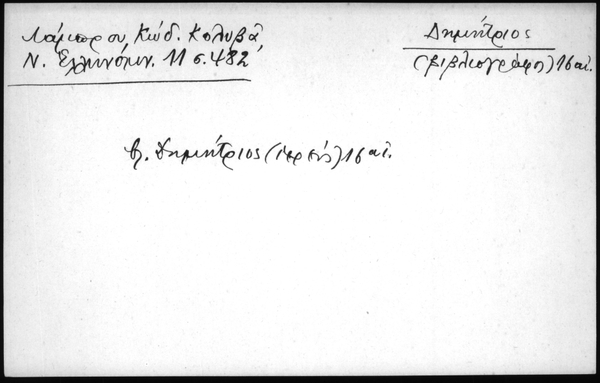 Λάμπρου, Κώδ. Κολυβᾶ
Ν. Ἑλληνομν. 11 σ. 482
Δημήτριος
(βιβλιογράφος) 16 αἰ.
βλ. Δημήτριος (ἱερεύς) 16 αἰ.